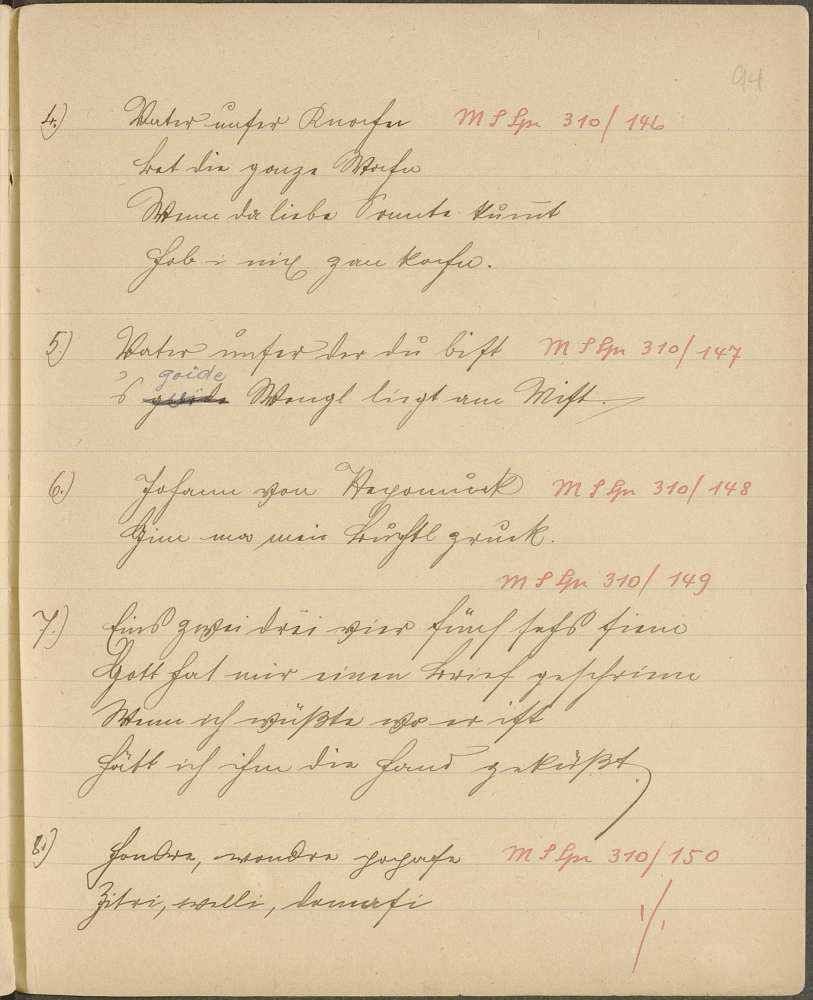 94
4.) Vater unser Knochn MSSpr 310/146
bet die ganze Wochn
Wenn da liebe Sonnta kummt
Hob i nix zan kochn.
5.) Vater unser der du bist MSSpr 310/147
goide
's Wongl liegt am Mist.
6.) Johann von Nepomuck MSSpr 310/148
Gim ma mein Buchtl zruck.
MSSpr 310/149
7.) Eins zwei drei vier fünf sechs siem
Gott hat mir einen Brief geschriem
Wenn ich wüßte wo er ist
Hätt ich ihm die Hand geküßt.
8.) MSSpr 310/150
1/1